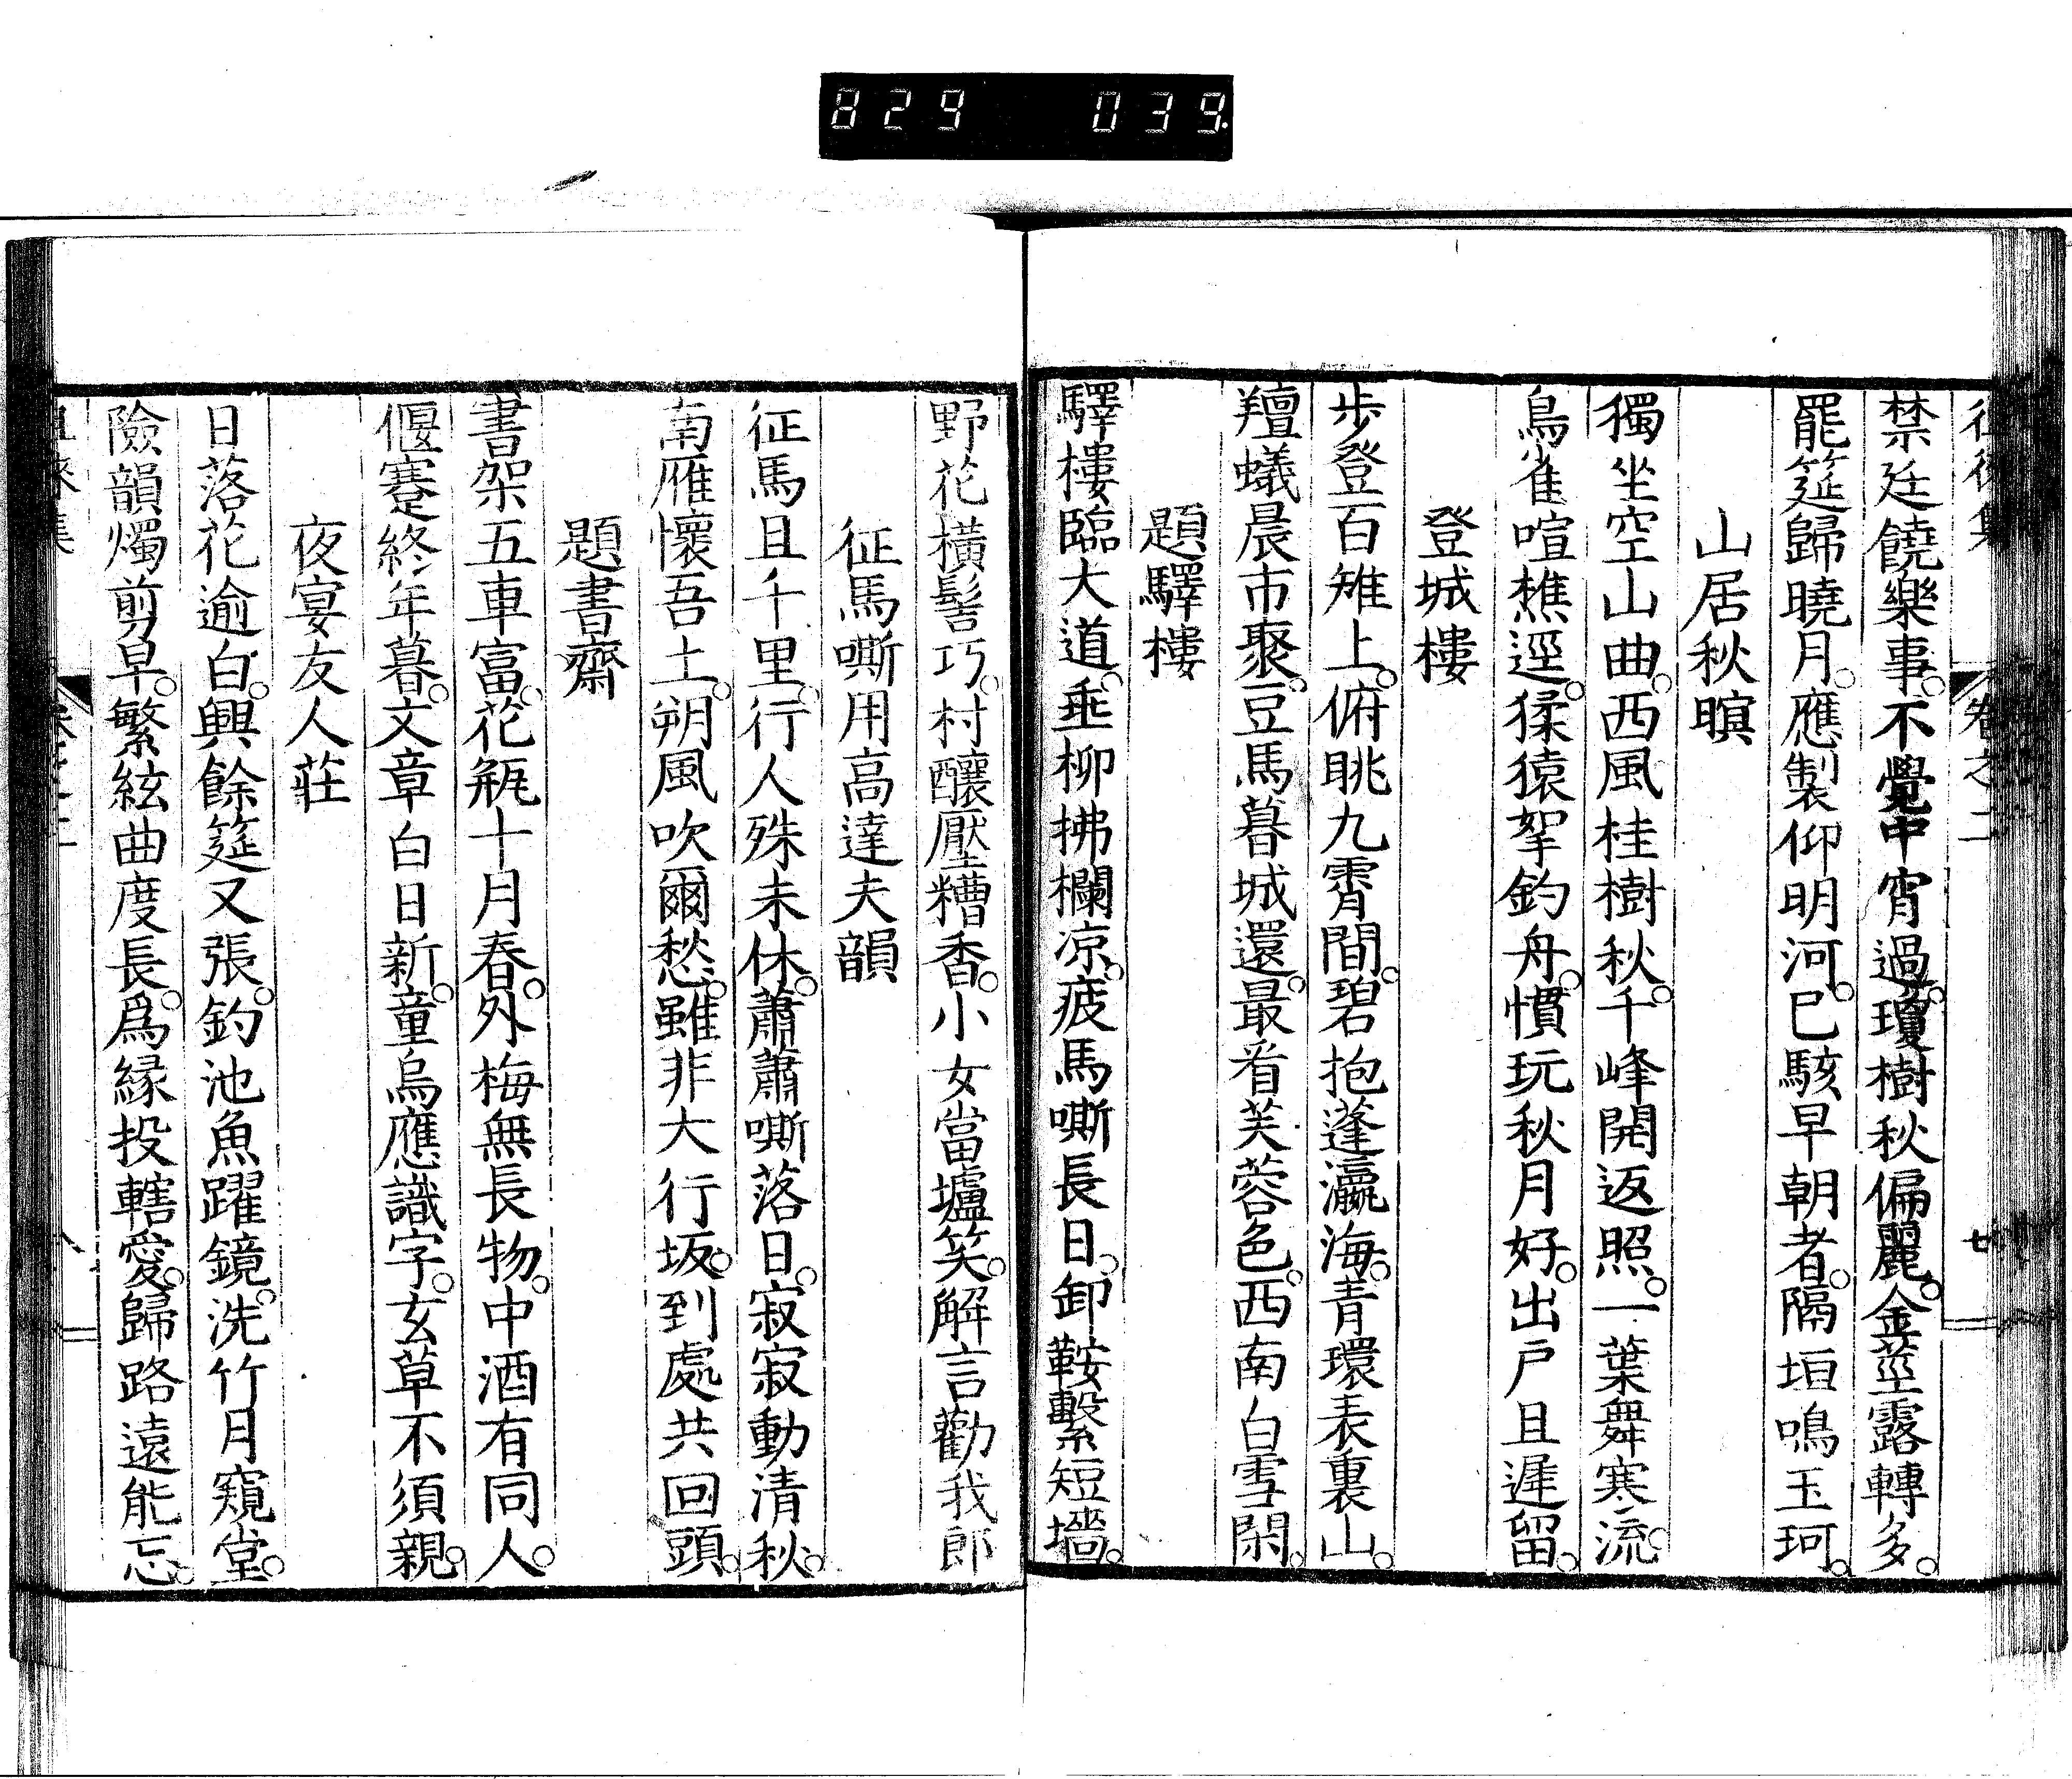 829 039
卷之二 廿
禁廷饒樂事。不覺中宵過。瓊樹秋偏麗。金莖露轉多。
罷筵歸曉月。應製仰明河。已駭早朝者。隔垣鳴玉珂。
山居秋暝
獨坐空山曲。西風桂樹秋。千峰開返照。一葉舞寒流。
鳥雀喧樵逕。猱猿挐釣舟。慣玩秋月好。出戶且遲留。
登城樓
步登百雉上。俯眺九霄間。碧抱蓬瀛海。青環表裏山。
羶蟻晨市聚。豆馬暮城還。最看芙蓉色。西南白雪閑。
題驛樓
驛樓臨大道。垂柳拂欄涼。疲馬嘶長日。卸鞍繫短墻。
野花橫髻巧。村釀壓糟香。小女當壚笑。解言勸我郎
征馬嘶用高達夫韻
征馬且千里。行人殊未休。蕭蕭嘶落日。寂寂動清秋。
南雁懷吾土。朔風吹爾愁。雖非大行坂。到處共回頭。
題書齋
書架五車富。花瓶十月春。外梅無長物。中酒有同人。
偃蹇終年暮。文章白日新。童烏應識字。玄草不須親。
夜宴友人莊
日落花逾白。興餘筵又張。釣池魚躍鏡。洗竹月窺堂。
險韻燭剪早。繁絃曲度長。爲緣投轄愛。歸路遠能忘。